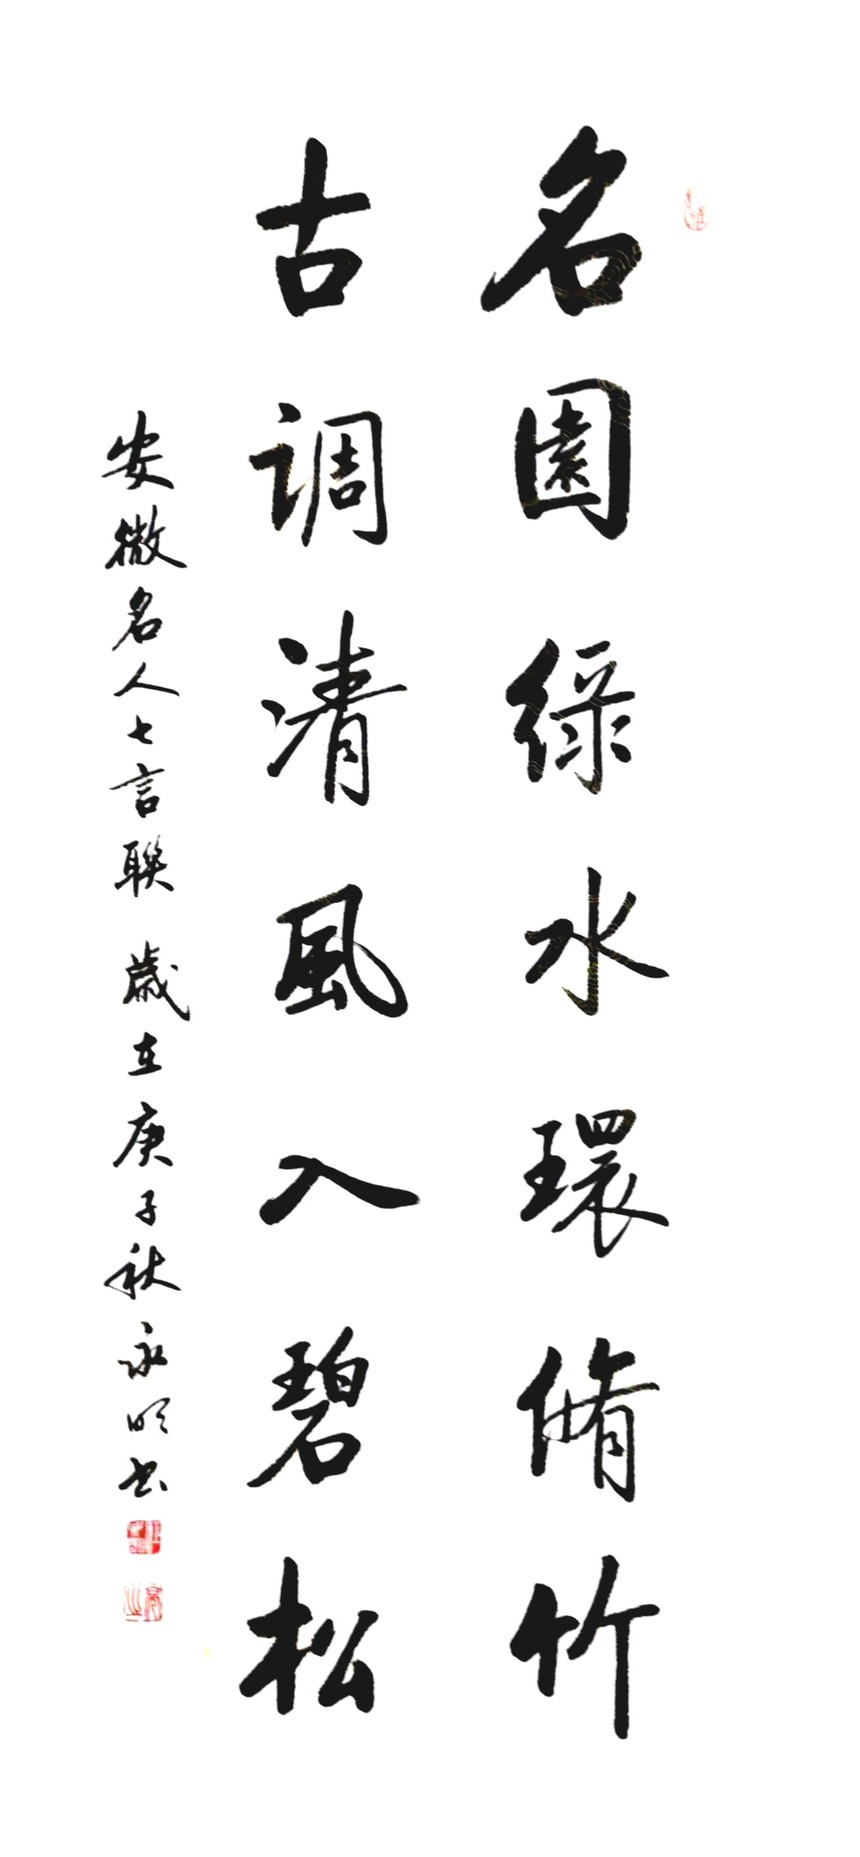 名園綠水環脩竹
古调清風入碧松
安徽名人七言联 歲在庚子秋永明书